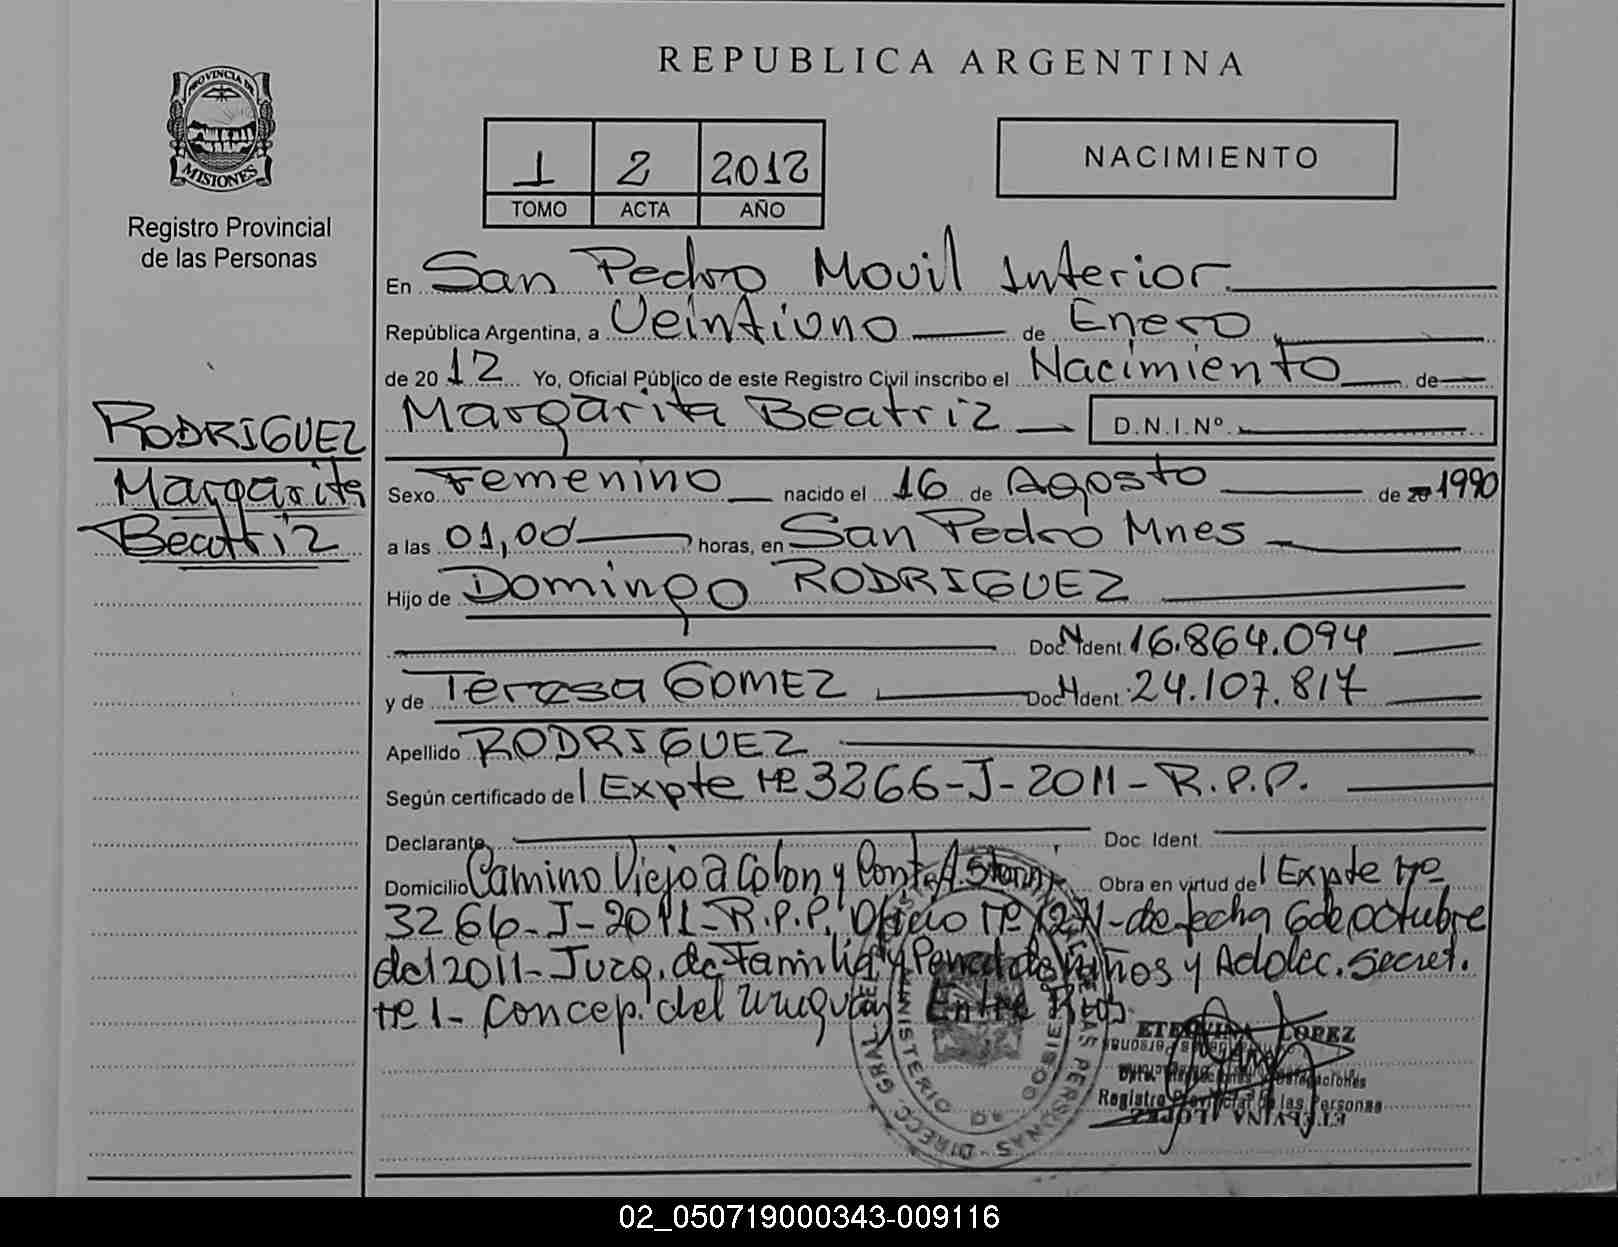 REPUBLICA ARGENTINA
PROVINCIA DE
MISIONES
Registro Provincial
de las Personas
1 2 2012
TOMO ACTA AÑO
NACIMIENTO
En San Pedro Movil Interior
República Argentina, a Veintiuno de Enero
de 2012 Yo, Oficial Público de este Registro Civil inscribo el Nacimiento de
Margarita Beatriz D.N.I.Nº
RODRIGUEZ
Margarita
Beatriz
Sexo Femenino nacido el 16 de Agosto de 20 1990
a las 01,00 horas, en San Pedro Mnes
Hijo de Domingo RODRIGUEZ
Doc. Ident. 16.864.094
y de Teresa GOMEZ Doc. Ident. 24.107.817
Apellido RODRIGUEZ
Según certificado del Expte Nº 3266-J-2011-R.P.P.
Declarante Doc. Ident.
Domicilio Camino Viejo a Colon y Obra en virtud del Expte Nº
3266-J-2011-R.P.P. Oficio Nº de fecha 6 de Octubre
del 2011- Juzg. de Familia y Penal de Niños y Adolec. Secret.
Nº 1- Concep. del Uruguay Entre Rios.
ETELVINA LOPEZ
Registro Provincial de las Personas
ETELVINA LOPEZ
02_050719000343-009116